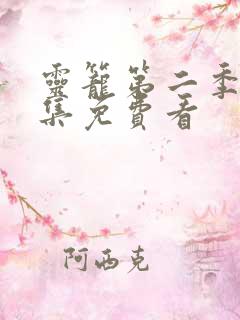 靈籠第二季
集免費看
阿西克